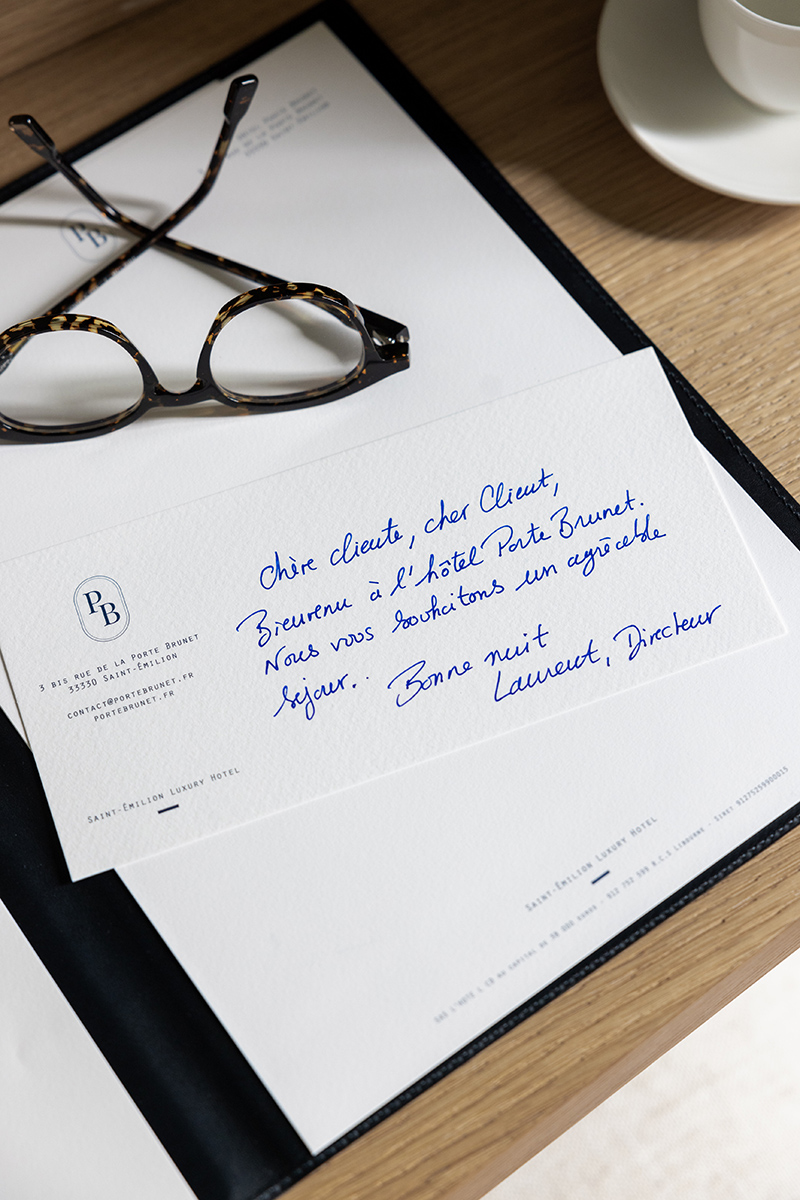 PB
PB
3 BIS RUE DE LA PORTE BRUNET
33330 SAINT-ÉMILION
CONTACT@PORTEBRUNET.FR
PORTEBRUNET.FR
SAINT-ÉMILION LUXURY HOTEL
Chère cliente, cher Client,
Bienvenu à l'hôtel Porte Brunet.
Nous vous souhaitons un agréable
séjour..
Bonne nuit
Laurent, Directeur
SAINT-ÉMILION LUXURY HOTEL
AU CAPITAL DE 38 000 EUROS - 912 752 599 R.C.S LIBOURNE - SIRET 91275259900015